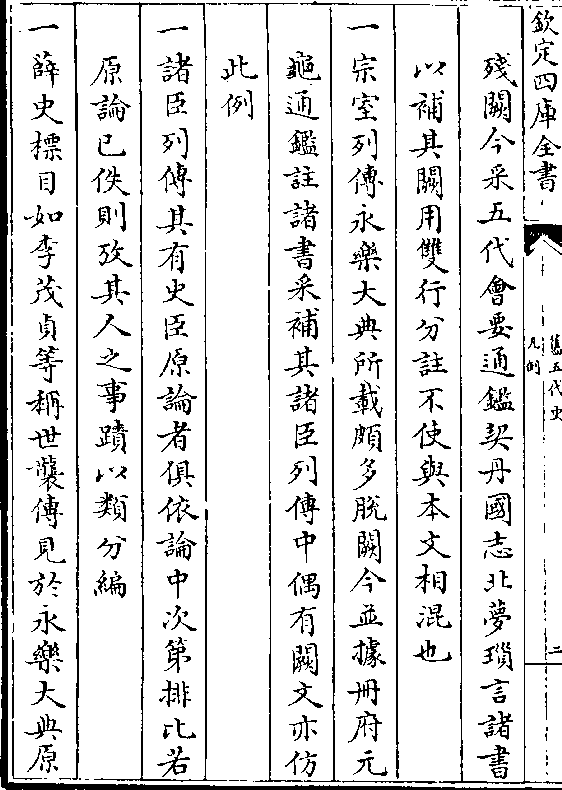 欽定四庫全書
舊五代史
凡例
二
殘闕今采五代會要通鑑契丹國志北夢瑣言諸書
以補其闕用雙行分註不使與本文相混也
一宗室列傳永樂大典所載頗多脫闕今並據冊府元
龜通鑑註諸書采補其諸臣列傳中偶有闕文亦仿
此例
一諸臣列傳其有史臣原論者俱依論中次第排比若
原論已佚則攷其人之事蹟以類分編
一薛史標目如李茂貞等稱世襲傳見於永樂大典原